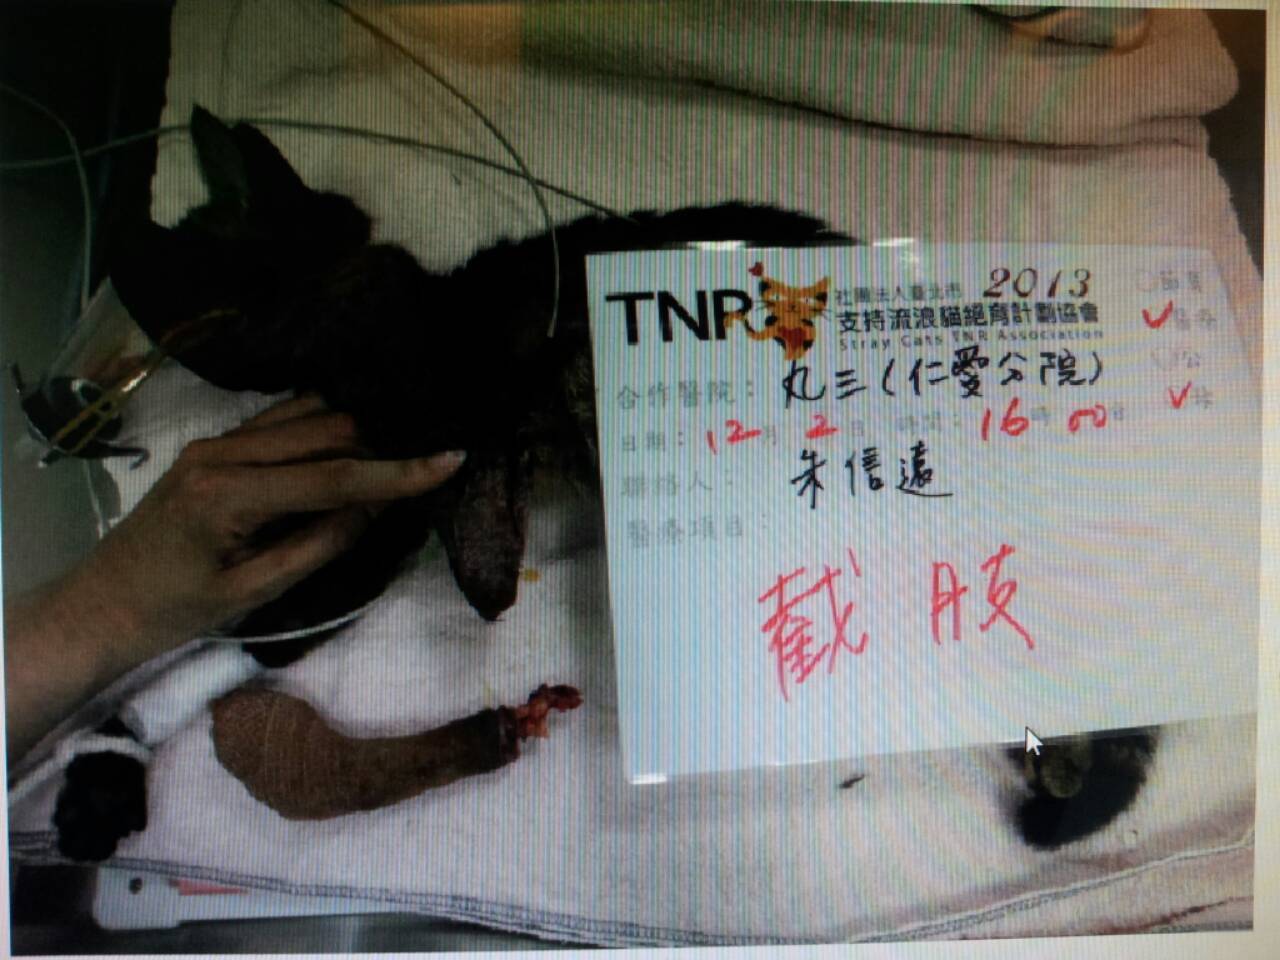 TNR
社團法人臺北市 2013
支持流浪貓絕育計劃協會
Stray Cats TNR Association
合作醫院: 丸三(仁愛分院)
日期: 12月 2日 時間: 16時 00分
聯絡人: 朱信遠
醫療項目:
截肢